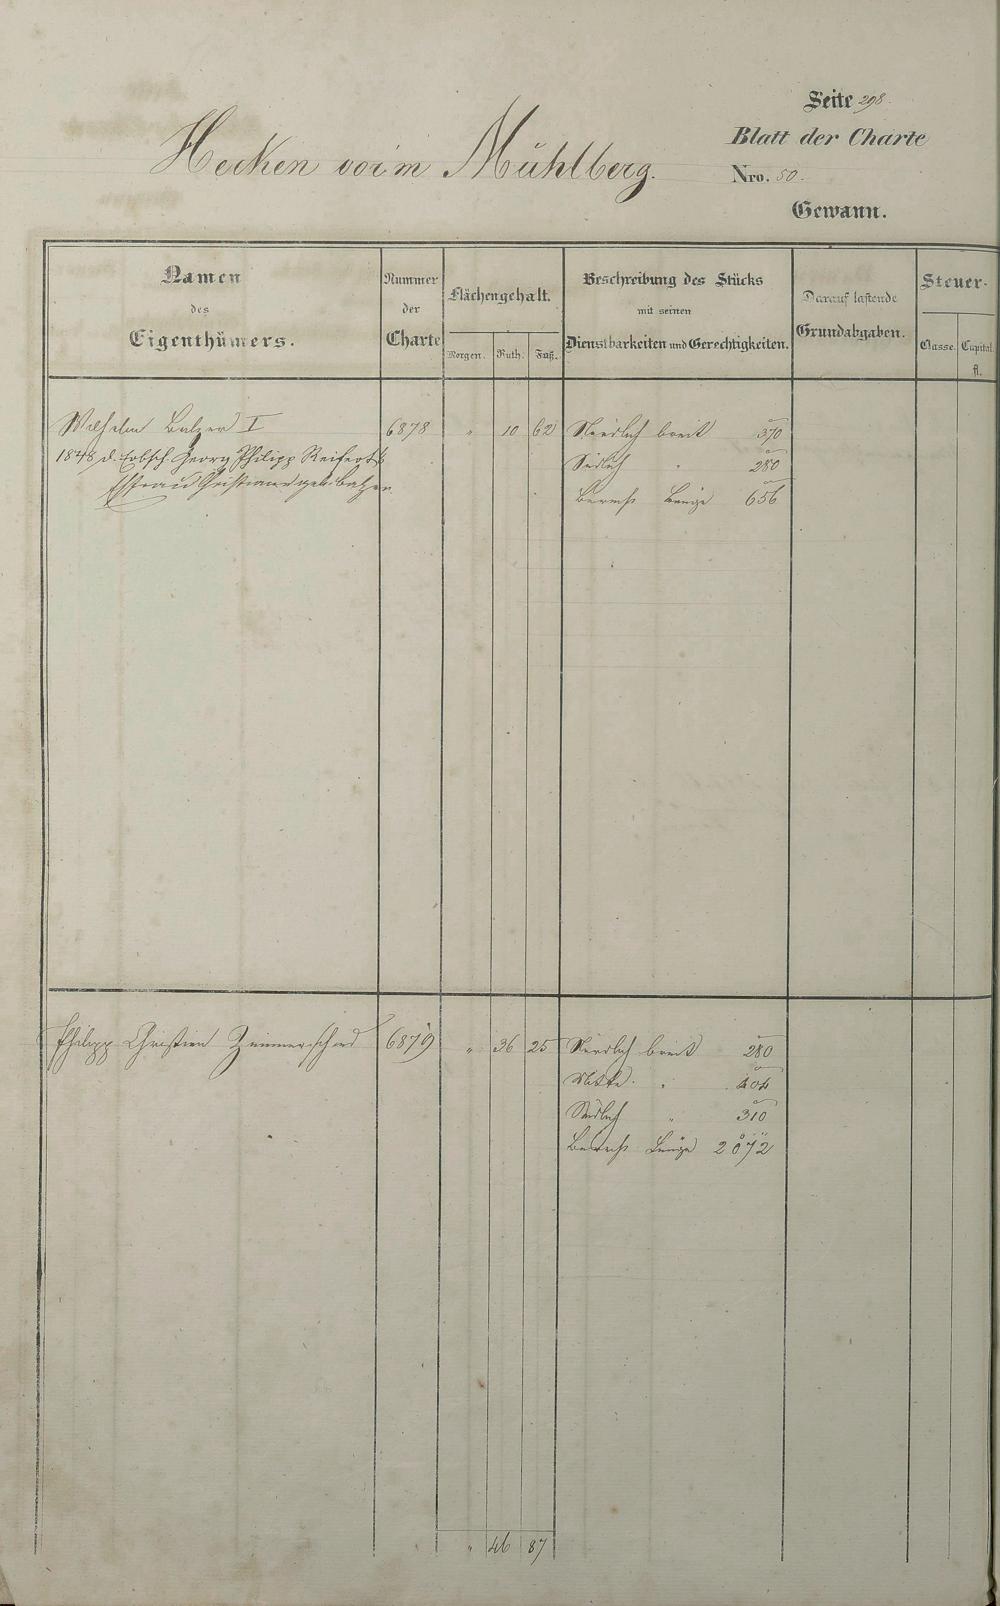 Seite 298.
Hecken vorm Mühlberg.
Blatt der Charte
Nro. 50.
Gewann.
Namen des Eigenthümers.
Nummer der Charte
Flächengehalt.
Morgen. Ruth. Fuß.
Beschreibung des Stücks mit seinen Dienstbarkeiten und Gerechtigkeiten.
Darauf lastende Grundabgaben.
Steuer-
Classe. Capital. fl.
Wilhelm Balzer I 6878 " 10 62 Nördlich breit 370
1848 d. Erbsch. Georg Philipp Reiferts Südlich " 280
Ehefrau Christiane geb. Balzer Berechn Länge 656
Philipp Christian Zimmerschied 6879 " 36 25 Nördlich breit 280
Mitte " 404
Südlich " 310
Berechn Länge 2072
" 46 87